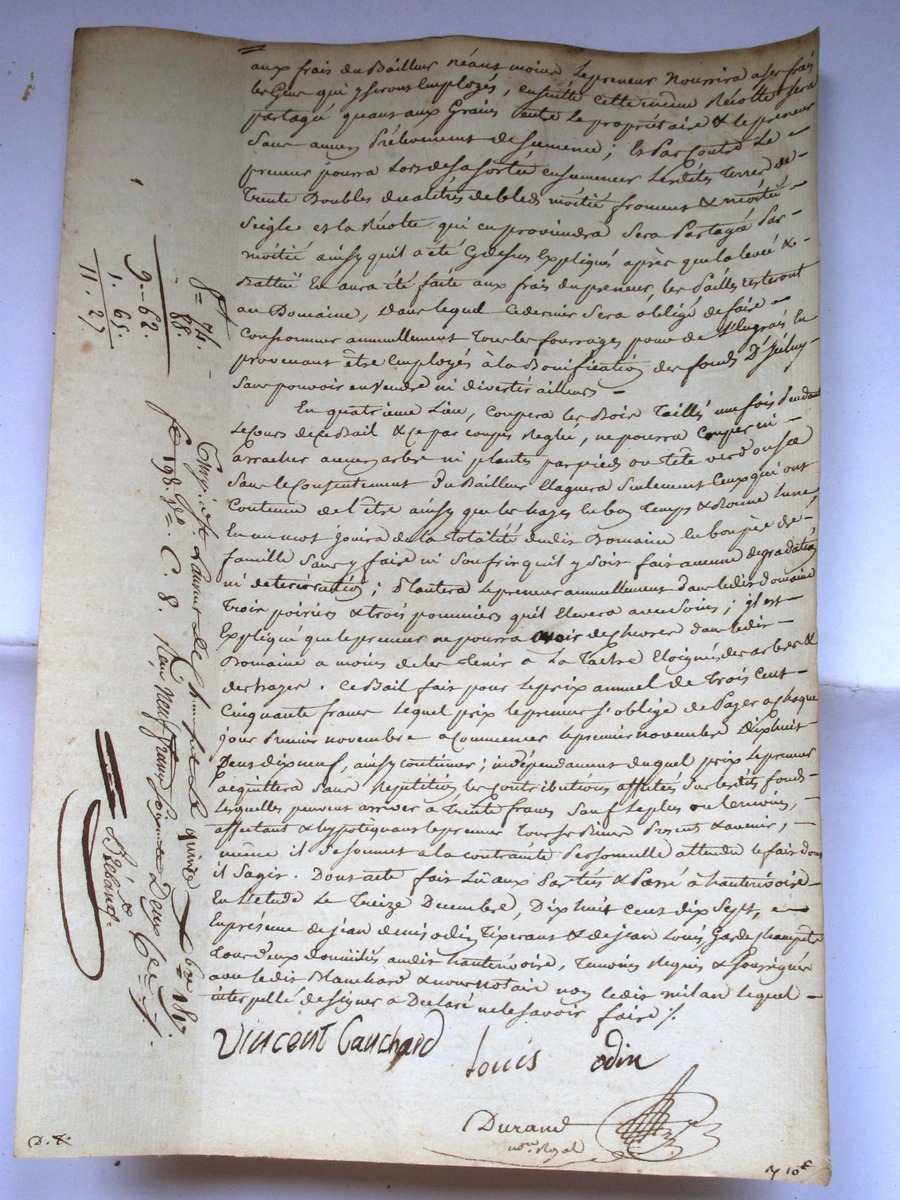 aux frais du Bailleur néant moins le preneur nourrira a ses frais
les Gens qui y seront Employés, ensuitte cette même Récotte sera
partagé quant aux Grains Entre le propriétaire & le preneur
Sans aucun Prélevement de semence ; Et Par Contre Le
preneur pourra Lors de sa sortie ensemencer Lesdites Terres de
Trente Doubles de bled moitié froment & moitié
Seigle et la Récotte qui en proviendra Sera Partagé Par
moitié ainsy quil a été Cydessus Expliqué après que la levé &
Battue En aura été faite aux frais du preneur, les Pailles resteront
au Domaine, dans lequel Ce dernier Sera obligé de faire
Consommer annuellement Tous les fourrages pour de L'Engrais En
provenant être Employés à la Bonification des fonds D'Iceluy
Sans pouvoir en vendre ni divertir ailleurs
En quatrieme Lieu, Coupera les Bois Taillis une fois Pendant
Le cours de Ce Bail & ce par coupes Reglé, ne pourra Couper ni
arracher aucun arbre ni plantes par pieds ou tête verd ou sec
Sans le Consentement Du Bailleur Elaguera Seulement Ceux qui ont
Coutume de L'être ainsy que les hayes En bon Temps & Bonne Lune,
En un mot jouira de la totalité dudit Domaine En bon père de
famille Sans y faire ni Souffrir quil y Soit fait aucune degradation
ni deterioration ; Plantera le preneur annuellement Dans ledit domaine
Trois poiriers & trois pommiers quil Elevera avec Soins ; il est
Expliqué que le preneur ne pourra avoir de Chevres dans ledit
Domaine a moins de les Tenir à La Tache Eloignés des arbres &
des hayes . Ce Bail fait pour le prix annuel de Trois Cent
Cinquante francs Lequel prix le preneur s'oblige de Payer a chaque
jour Premier novembre à Commencer le premier novembre Dixhuit
Cent dix neuf, ainsy Continuer ; independament duquel prix le preneur
acquittera Sans Repetition les Contributions affectés Sur lesdits fonds
Lesquelles peuvent arriver à Trente francs Sauf le plus ou le moins,
affectant & hypotéquant le preneur Tous ses Biens Present & avenir,
même il se soumet a la contrainte Personnelle attendu le fait dont
il Sagit. Dont acte fait Lu aux Parties & Passé à hauterivoire
En L'etude Le Treize Decembre, Dix huit cent dix Sept,
En présence de jean denis odin Tixerant & de jean Louis Garde champêtre
Tous deux domiciliés audit hauterivoire, Temoins Requis & Soussignés
avec ledit Blanchard & nous notaire non ledit milan lequel
interpellé de signer à Déclaré ne le savoir faire /.
Vincent Cauchard
Louis odin
Durand
nore Royal
D. K.
8 = 74.
88.
9 - 62.
1. 65.
11. 27
Enregistré à St Laurent de Chamousset Le quinze Xbre 1817
fo 198. Vo. C. 8. Reçu neuf francs Soixante Deux Ces